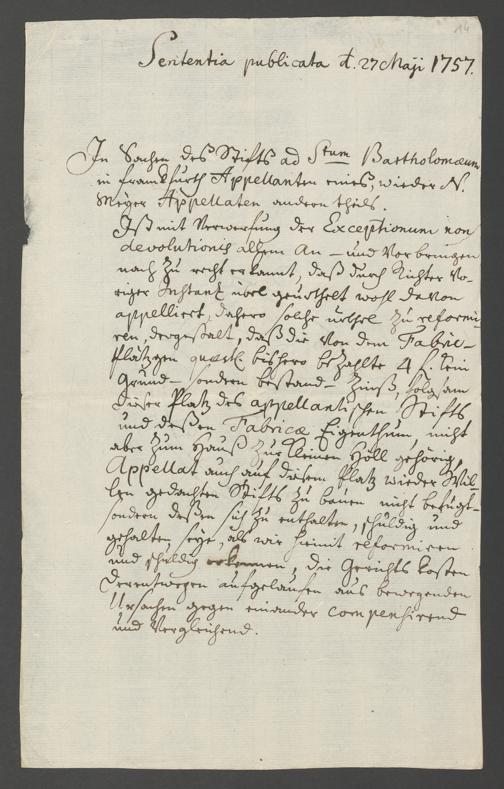 14
Sententia publicata d. 27 Maji 1757.
In Sachen des Stifts ad Stum Bartholomæum
in franckfurth Appellanten eines, wieder N.
Meyer Appellaten anderen theils.
Ist mit Verwerfung der Exceptionum non
devolutionis allem An- und Vorbringen
nach zu recht erkannt, daß durch Richter Vo-
riger Instantz übel geurthelt wohl davon
appelliert, dahero solche urthel zu reformi-
ren, dergestalt, daß die von dem Fabric-
Platzgen quæst. bishero bezahlte 4 h. kein
Grund- sondern bestand-Zinß, folgsam
dieser Platz des appellantischen Stifts
und deßen Fabricæ Eigenthum, nicht
aber zum Hauß zur kleinen Höll gehörig,
Appellat auch auf diesem Platz wieder Wil-
len gedachten Stifts zu bauen nicht befugt-
sondern deßen sich zu enthalten, schuldig und
gehalten seye, als wir hiemit reformiren
und schuldig erkennen, die Gerichts kosten
derentwegen aufgelaufen aus bewegenden
Ursachen gegen einander compensirend
und Vergleichend.